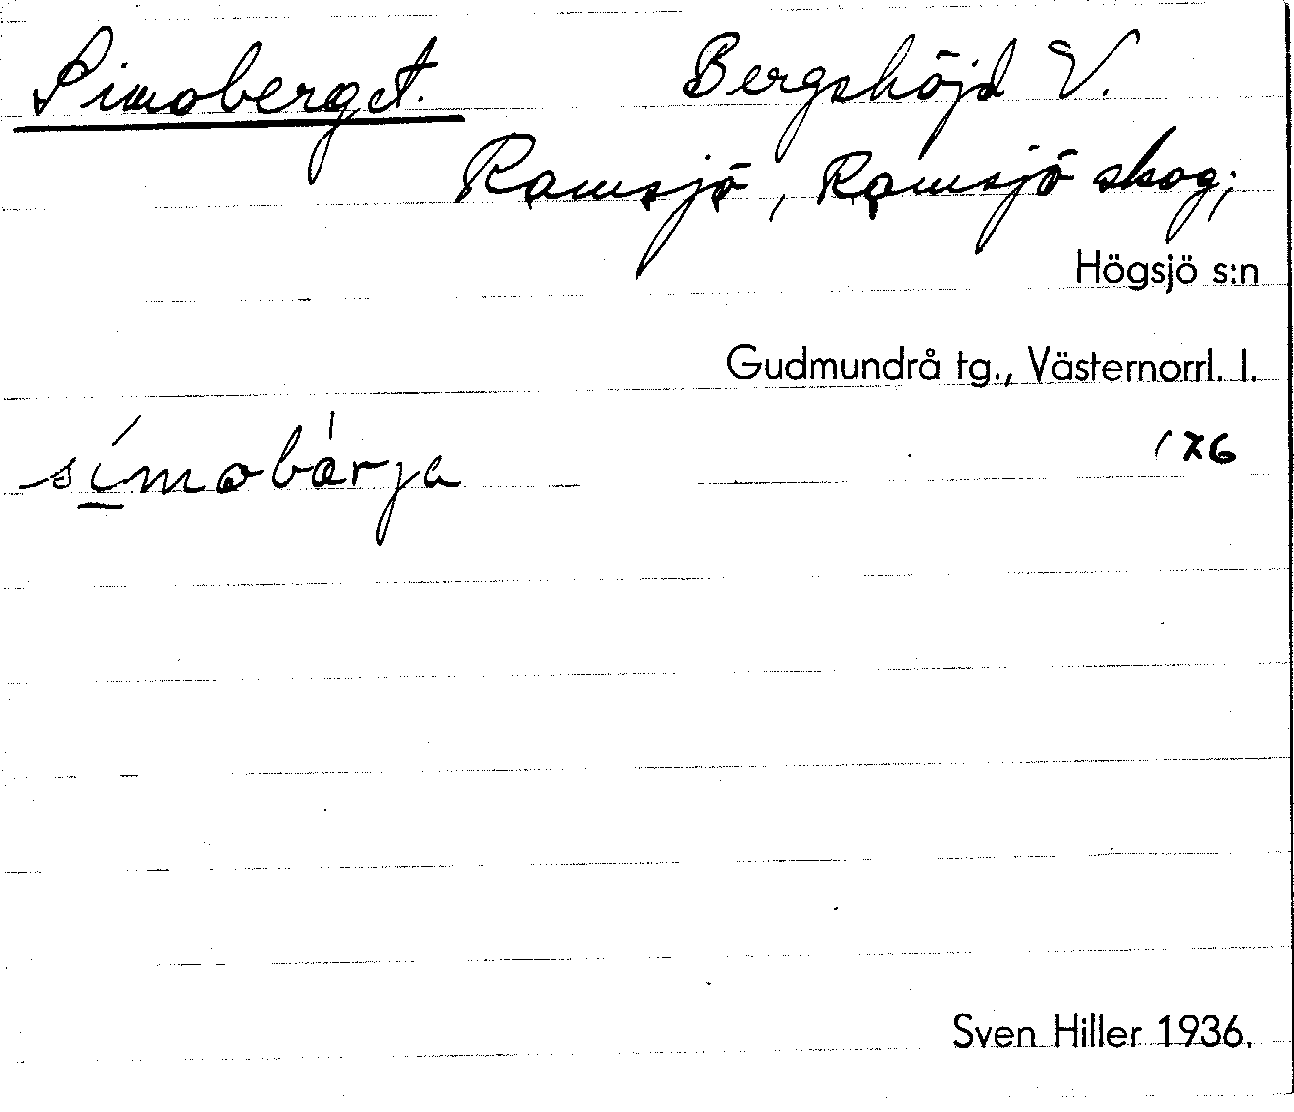 Simoberget. Bergshöjd V.
Ramsjö, Ramsjö skog;
Högsjö s:n
Gudmundrå tg., Västernorrl. l.
símobárja 176
Sven Hiller 1936.